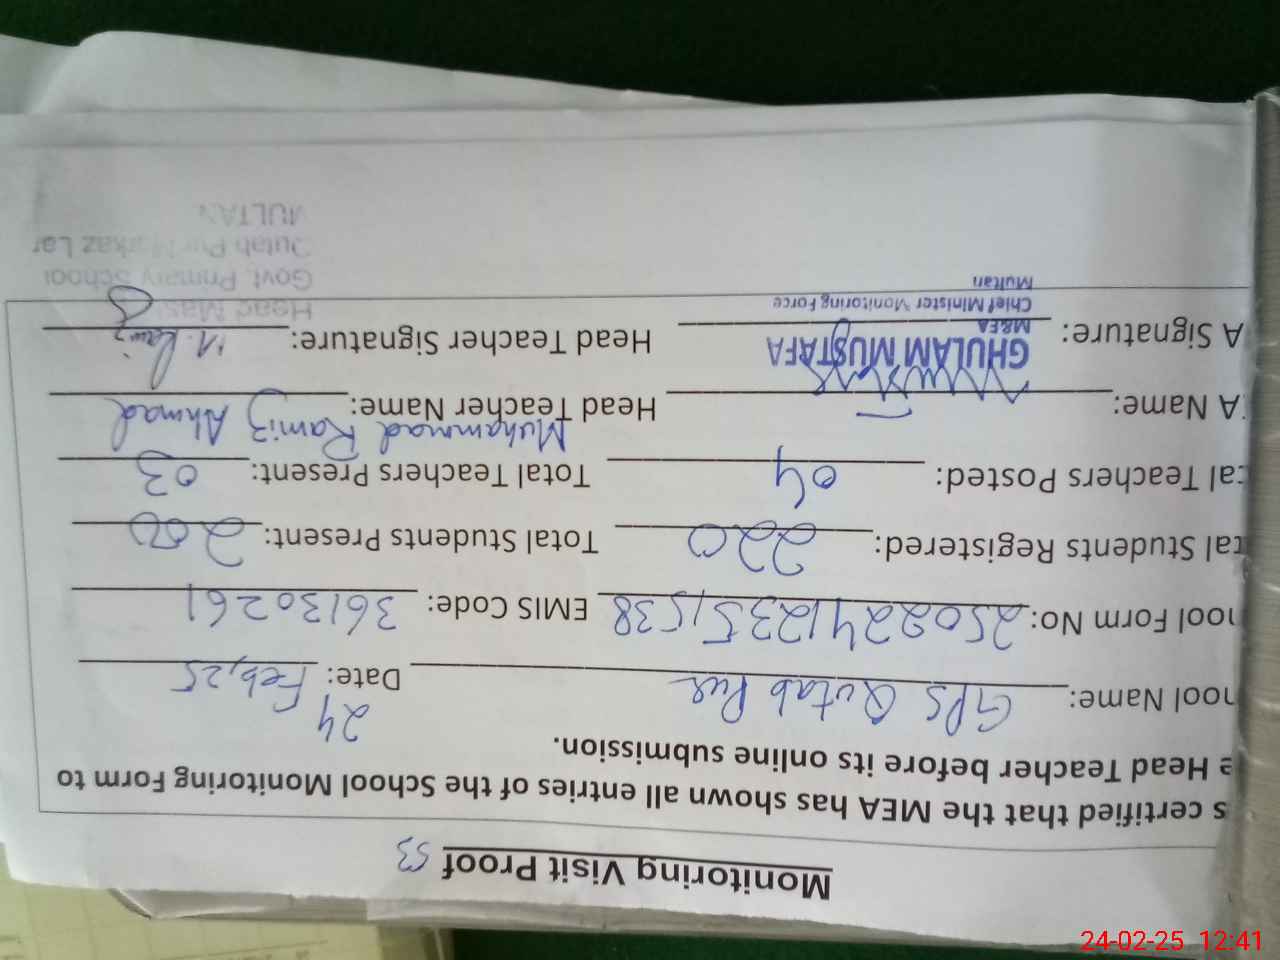 Monitoring Visit Proof 53
s certified that the MEA has shown all entries of the School Monitoring Form to
e Head Teacher before its online submission.
ool Name: GPS Qutab Pur Date: 24 Feb, 25
ool Form No: 25022412351538 EMIS Code: 36130261
tal Students Registered: 220 Total Students Present: 200
tal Teachers Posted: 04 Total Teachers Present: 03
A Name: Head Teacher Name: Muhammad Ramiz Ahmad
A Signature: Head Teacher Signature: M. Ramiz
GHULAM MUSTAFA
M&EA
Chief Minister Monitoring Force
Multan
Head Mas
Govt. Primary School
Qutab Pur Markaz Lar
MULTAN
24-02-25 12:41